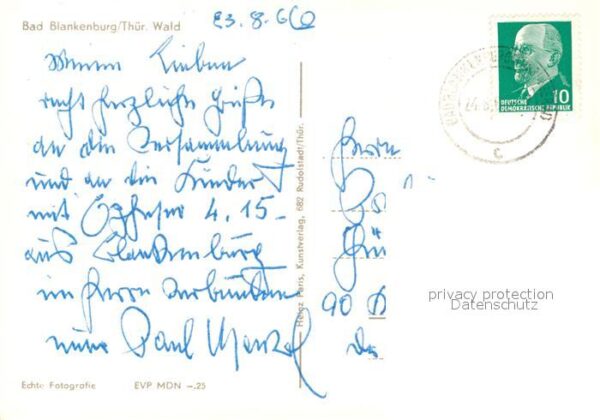 Bad Blankenburg/Thür. Wald
23.8.66
Meine Lieben
recht herzliche Grüße
an die Versammlung
und an die Kinder
mit Epheser 4.15-
aus Blankenburg
im Herrn verbunden
Paul
Herrn
90
Heinz Paris, Kunstverlag, 682 Rudolstadt/Thür.
DEUTSCHE
DEMOKRATISCHE REPUBLIK
10
c
privacy protection
Datenschutz
Echte Fotografie EVP MDN -.25